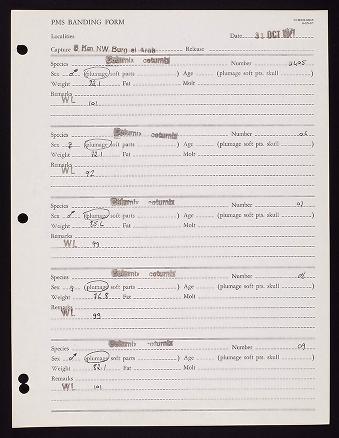 PMS BANDING FORM
Localities Date 31 OCT 1971
Capture 8 Km NW Burg el Arab Release
Species coturnix Number
Sex ♂ (plumage soft parts ) Age (plumage soft pts. skull )
Weight Fat Molt
Remarks
WL 101
Species coturnix Number 06
Sex ♀ (plumage soft parts ) Age (plumage soft pts. skull )
Weight 72.1 Fat Molt
Remarks
WL 97
Species coturnix Number 07
Sex ♂ (plumage soft parts ) Age (plumage soft pts. skull )
Weight Fat Molt
Remarks
WL 99
Species coturnix Number
Sex ♀ (plumage soft parts ) Age (plumage soft pts. skull )
Weight 76.8 Fat Molt
Remarks
WL 99
Species coturnix Number 09
Sex ♂ (plumage soft parts ) Age (plumage soft pts. skull )
Weight 82.1 Fat Molt
Remarks
WL 101